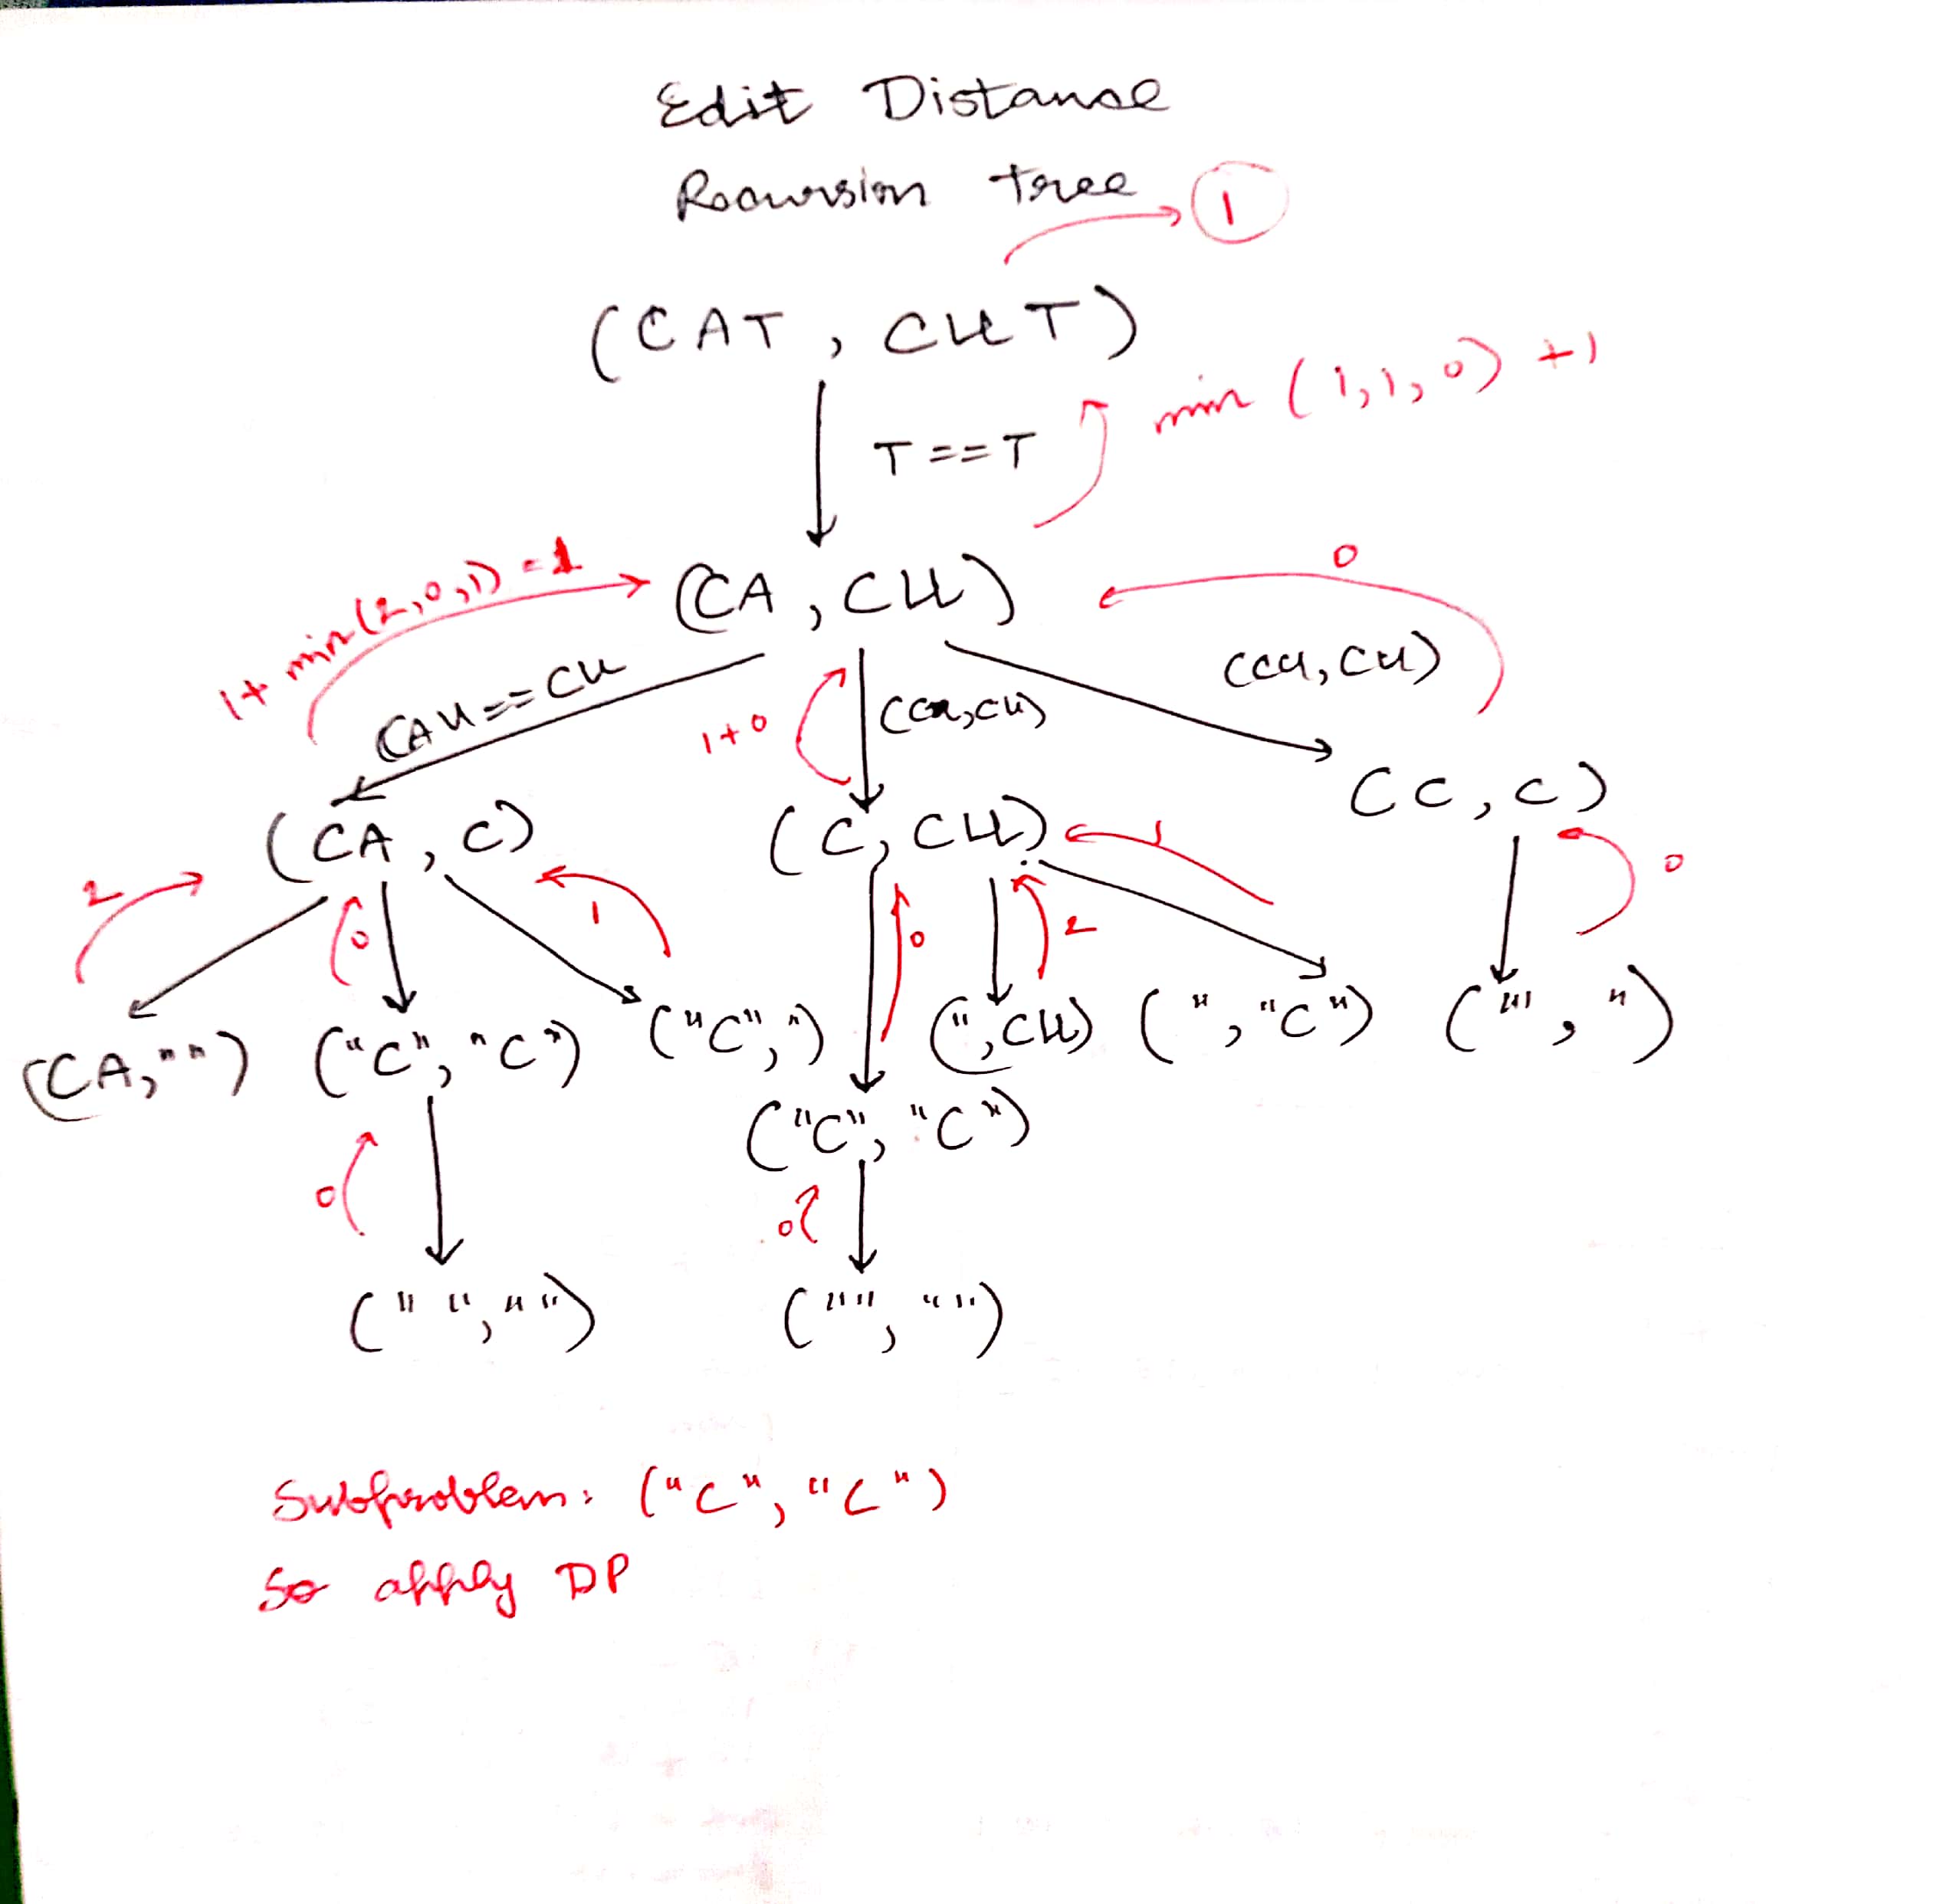 Edit Distance
Recursion Tree
1
(CAT, CUT)
T==T
min (1,1,0) +1
1+ min(2,0,1) = 1
(CA, CU)
0
CAU == CU
1+0
(CU, CU)
(CA, C)
(C, CU)
1
(C, C)
0
2
0
1
0
2
(CA, "")
("C", "C")
("C", ")
(", CU)
(", "C")
("", ")
("C", "C")
0
0
("", "")
("", "")
Subproblem: ("C", "C")
So apply DP